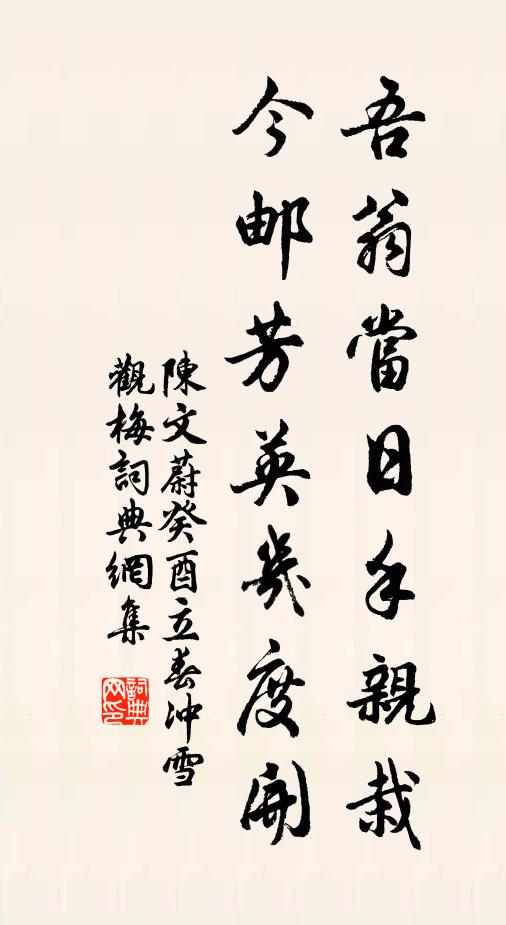 吾翁當日手親栽
今邮芳英幾度開
陳文蔚癸酉立春沖雪
觀梅詞典網集
詞典网印